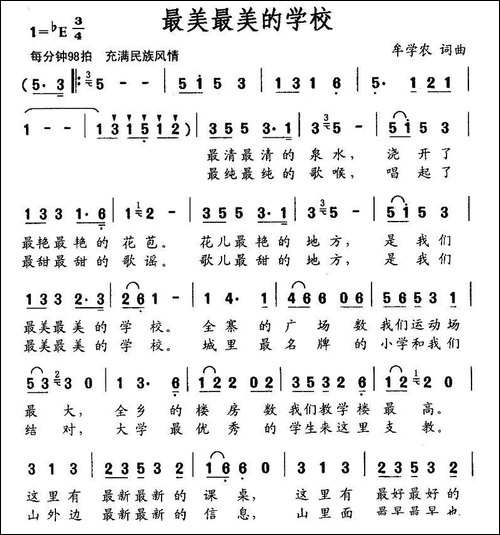 最美最美的学校
1=♭E 3/4
牟学农 词曲
每分钟98拍 充满民族风情
( 5· 3 ‖: 5 - - | 5 1 5 3 | 6 - - | 1· 3 1 6 | 5· 1 2 1 |
1 - - | 1 3 1 5 1 2 ) | 3 5 5 3· 1 | 3 5 - | 5 1 5 3 |
最清最清的泉水，浇开了
最纯最纯的歌喉，唱起了
1 3 3 1· 6 | 2 - | 3 5 5 3· 1 | 3 5 - | 5 1 5 3 |
最艳最艳的花苞。花儿最艳的地方，是我们
最甜最甜的歌谣。歌儿最甜的地方，是我们
1 3 3 2· 3 | 2 6 1 - | 1 4· 1 | 4 6 6 0 6 | 5 6 5 3 1 |
最美最美的学校。全寨的广场数我们运动场
最美最美的学校。城里最名牌的小学和我们
5 3 3 0 | 1 3· 6 | 1 2 2 0 2 | 3 2 3 1 6 | 1 2 2 0 |
最大，全乡的楼房数我们教学楼最高。
结对，大学最优秀的学生来这里支教。
3 1 3 | 2 3 5 3 2 | 1 6 6 0 | 3 1 3 | 2 3 5 3 2 |
这里有最新最新的课桌，这里有最好最好的
山外边最新最新的信息，山里面